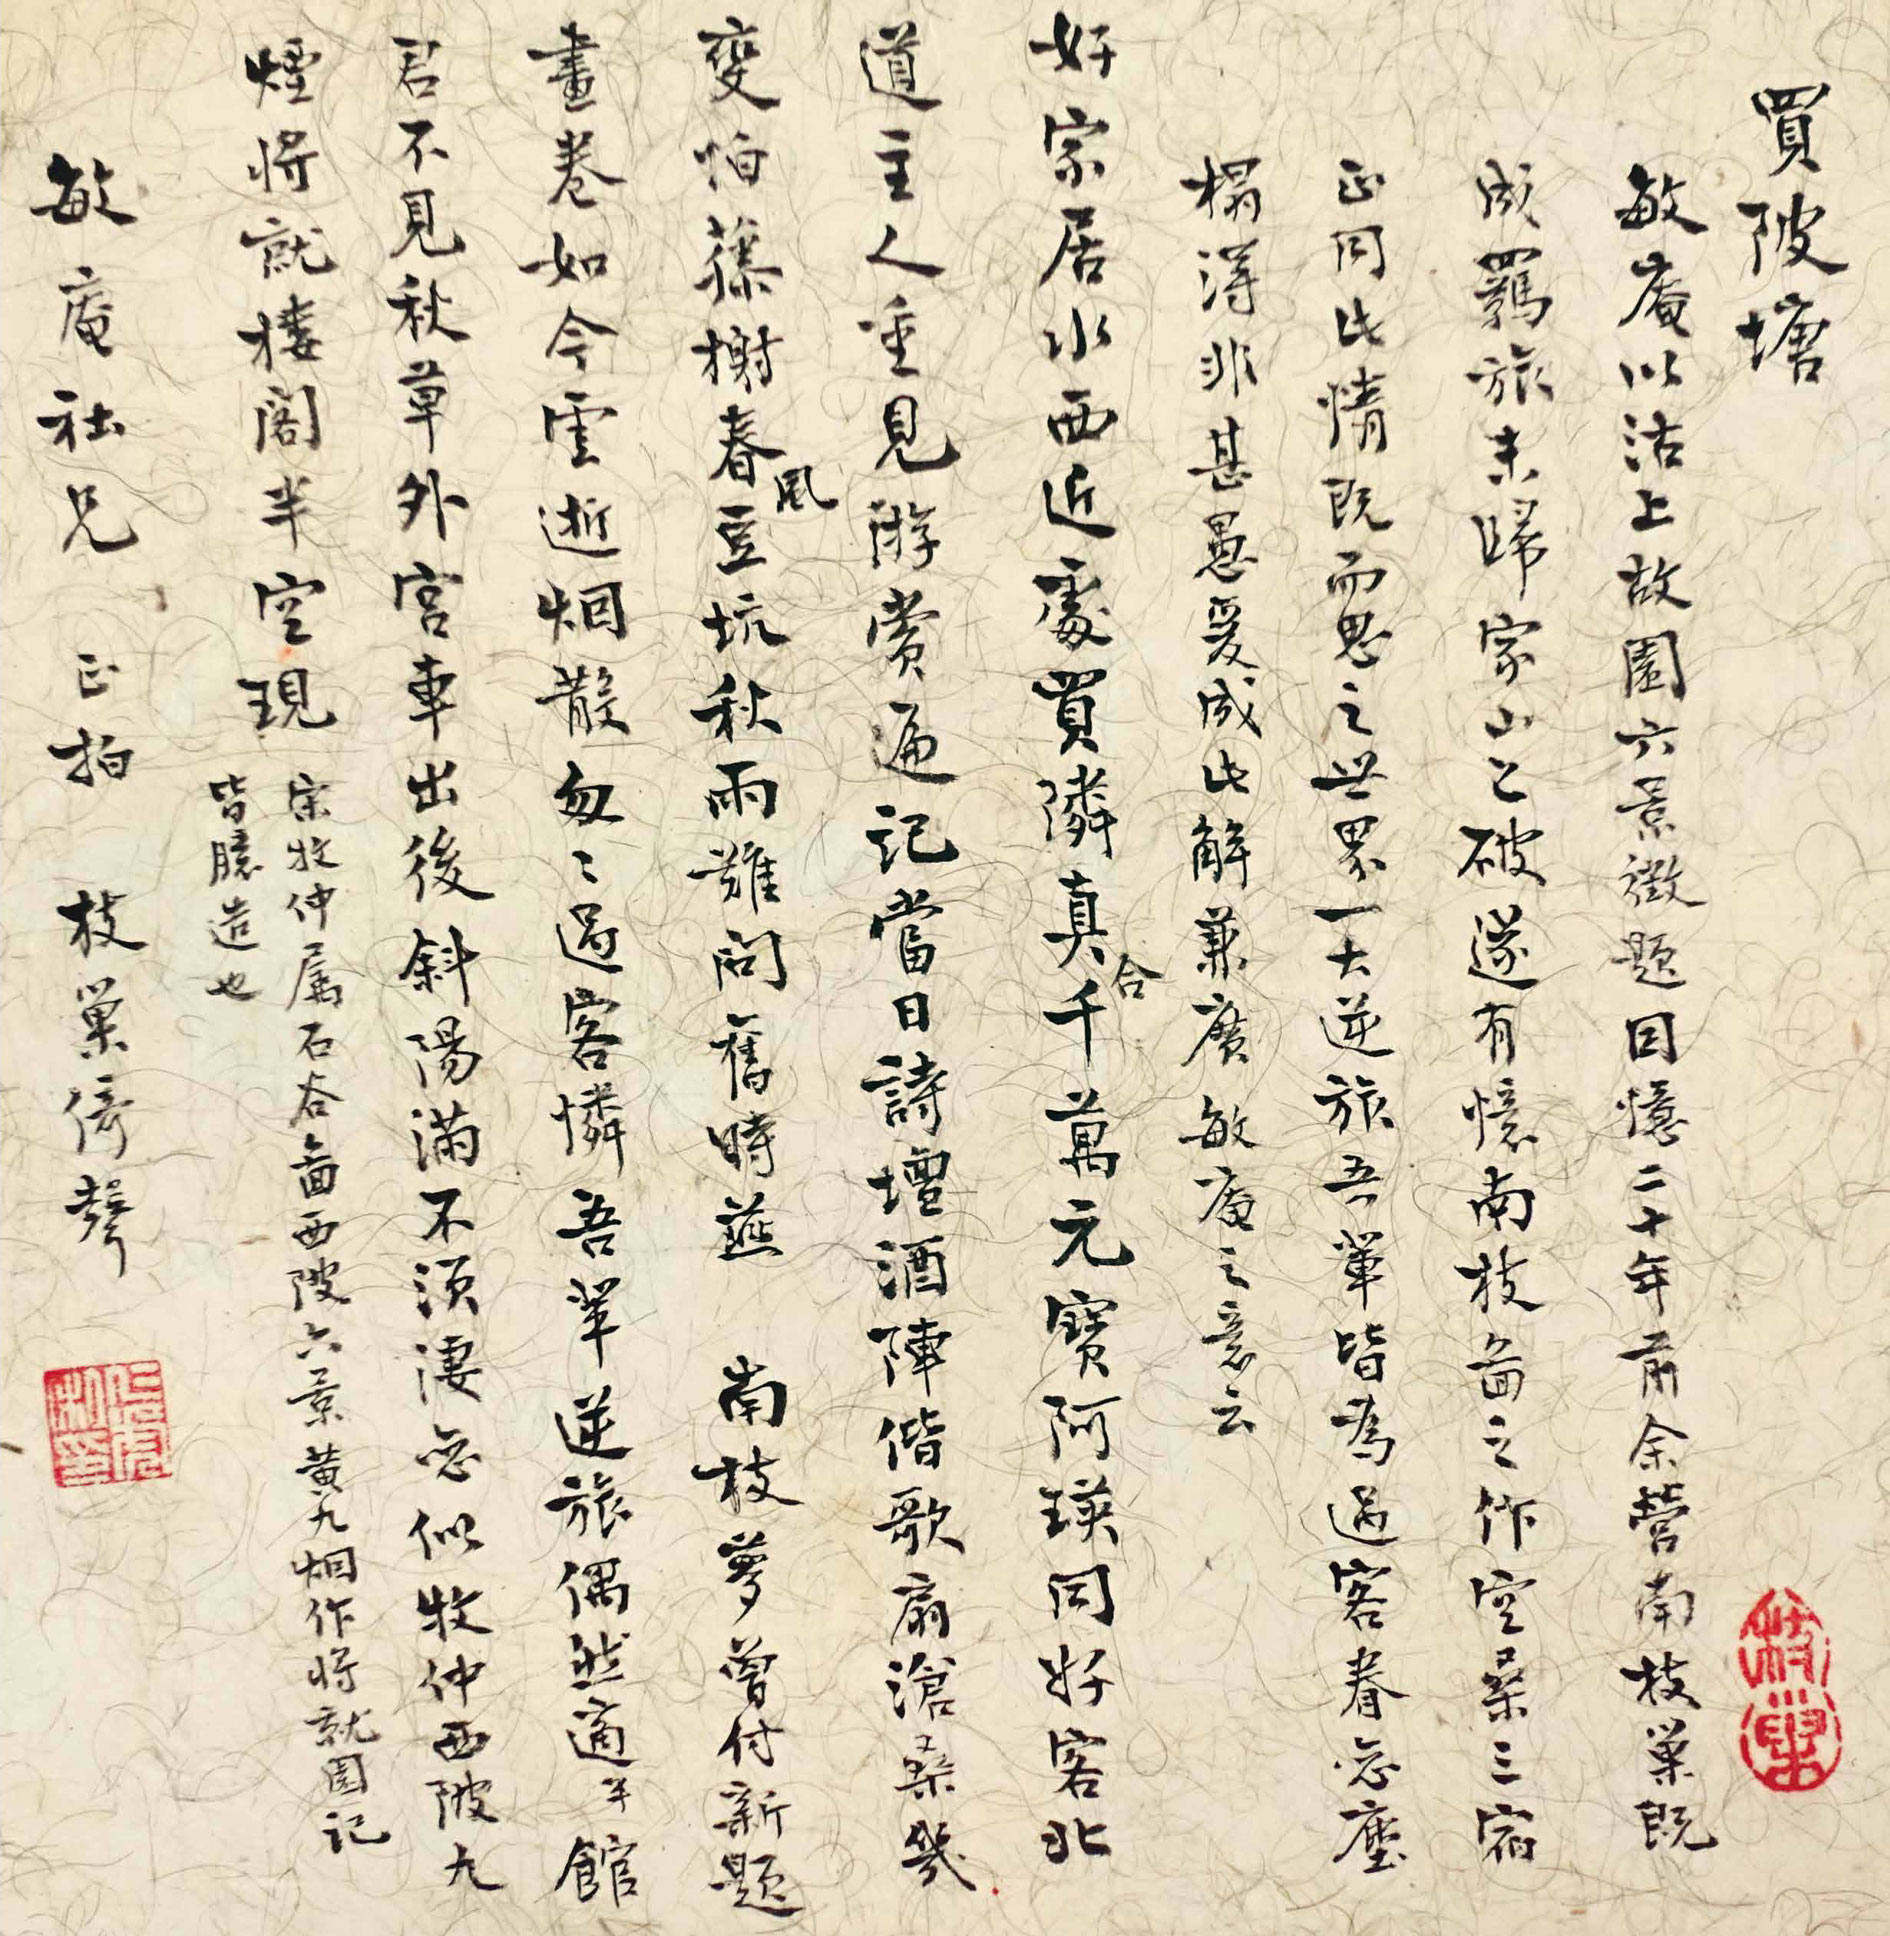 買陂塘
敏庵以沽上故園六景徵題因憶二十年前余營南枝巢既
成羈旅未歸家山已破遂有憶南枝啚之作空桑三宿
正同此情既而思之世界一大逆旅吾輩皆為過客眷戀塵
榻得非甚愚爰成此解兼廣敏庵之意云
好家居水西近處買隣真合千萬元寶阿瑛同好客北
道主人重見游賞遍記當日詩壇酒陣偕歌扇滄桑幾
變怕藤榭春風豆坑秋雨難問舊時燕 南枝夢曾付新題
畫卷如今雲逝烟散匆〻過客憐吾輩逆旅偶然適館
君不見秋草外宮車出後斜陽滿不須淒戀似牧仲西陂九
煙將就樓閣半空現
宋牧仲属石谷啚西陂六景黄九烟作将就園記
皆臆造也
敏庵社兄 正拍 枝巢倚聲
枝巢